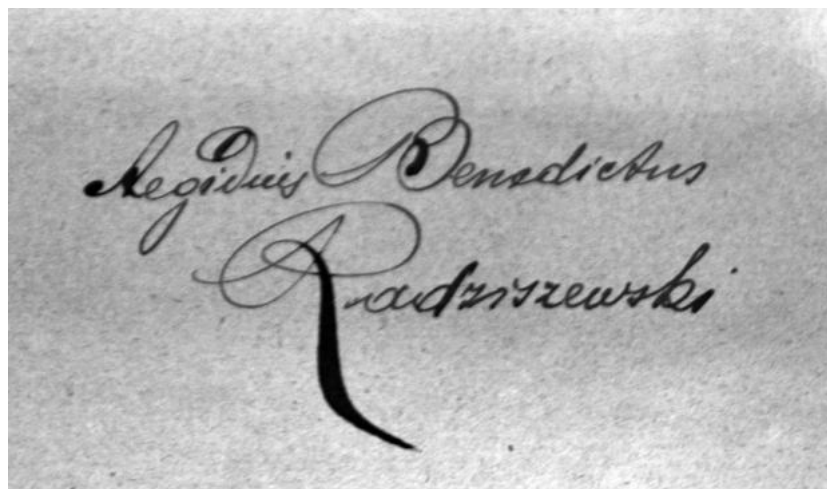 Aegidius Benedictus
Radziszewski